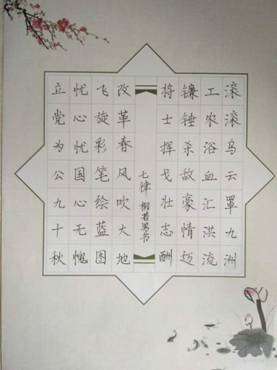 滚滚乌云罩九洲
工农浴血汇洪流
镰锤杀敌豪情迈
将士挥戈壮志酬
七律
改革春风吹大地
飞旋彩笔绘蓝图
忧心忧国心无愧
立党为公九十秋